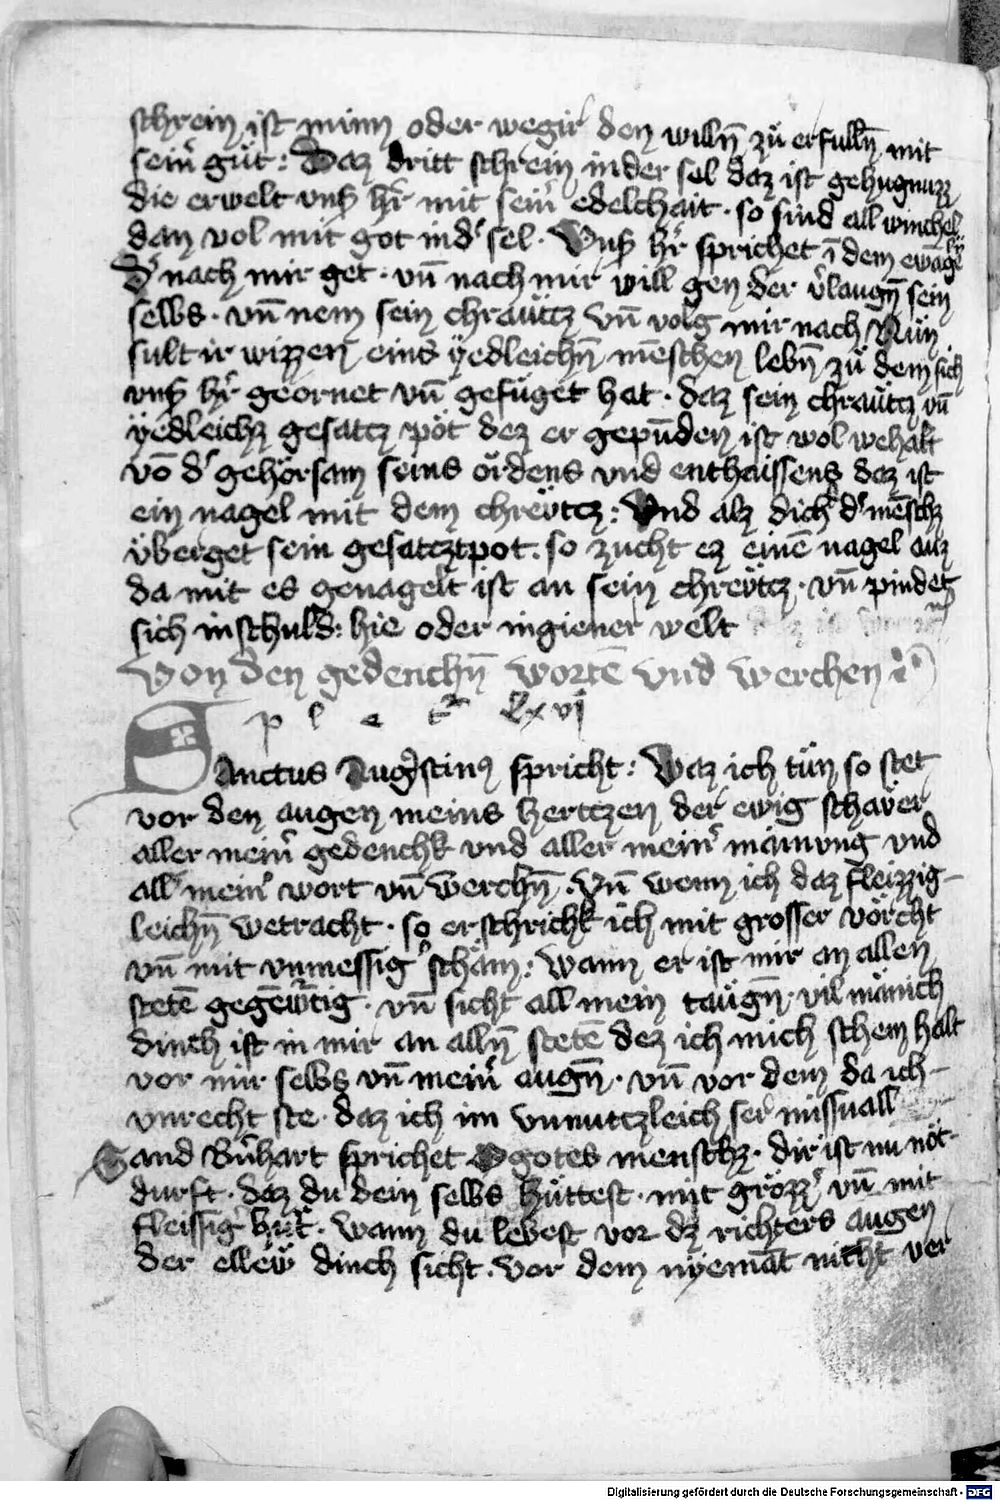 schrein ist minn oder wegir den willn̄ zů erfulln̄ mit
seinˀ gůt : Daz dritt schrein in der sel daz ist gehugnuzz
die erwelt vnsˀ hˀr mit seinˀ edelchait · so sind all winchel
dan vol mit got in dˀ sel · Vnsˀ hˀr sprichet ī dem ewāgelÿ
Dˀ nach mir get · vn̄ nach mir will gen der vˀlaugn̄ sein
selbs · vn̄ nem sein chräutcz vn̄ volg mir nach Nün
sult ir wizzen eins ÿedleichn̄ mēschen lebn̄ zů dem sich
vnsˀ hˀr geornet vn̄ gefüget hat · daz sein chräutcz vn̄
ÿedleichz gesatcz pöt dez er gepūden ist wol wehalt
vō dˀ gehörsam seins ördens vnd enthaissens daz ist
ein nagel mit dem chreütcz : Vnd alz dich dˀ mēschz
überget sein gesatcztpot · so zucht ez einē nagel auz
da mit es genagelt ist an sein chreütcz · vn̄ pindet
sich in schuld : hie oder in giener welt
Von den gedenchn̄ wortē vnd werchen
p l e tˀ Lxvj
Sanctus Augˀstinꝰ spricht : Waz ich tün so stet
vor den augen meins hertczen der ewig schaüer
aller meinˀ gedenchk vnd aller meinˀ mainung vnd
allˀ meinˀ wort vn̄ werchn̄ · Vn̄ wenn ich daz fleizzig-
leichn̄ wetracht · so erschrichk ich mit grosser vörcht
vn̄ mit vnmessigˀ schäm : Wann er ist mir an allen
stetē gegēwˀtig · vn̄ sicht all mein taügn̄ · vil mänich
dinch ist in mir an alln̄ stetē dez ich mich schem halt
vor mir selbs vn̄ meinˀ augn̄ · vn̄ vor dem da ich-
vnrecht ste · daz ich im vnnutczleich ser missuall
Sand Bˀnhart sprichet O gotes menschz · dir ist nu nöt-
durft · daz du dein selbs hüttest · mit grözzˀ vn̄ mit
fleissigˀ hüt · wann du lebest vor dz richters augen
der ellew dinch sicht · vor dem nÿemāt nicht ver
Digitalisierung gefördert durch die Deutsche Forschungsgemeinschaft - DFG